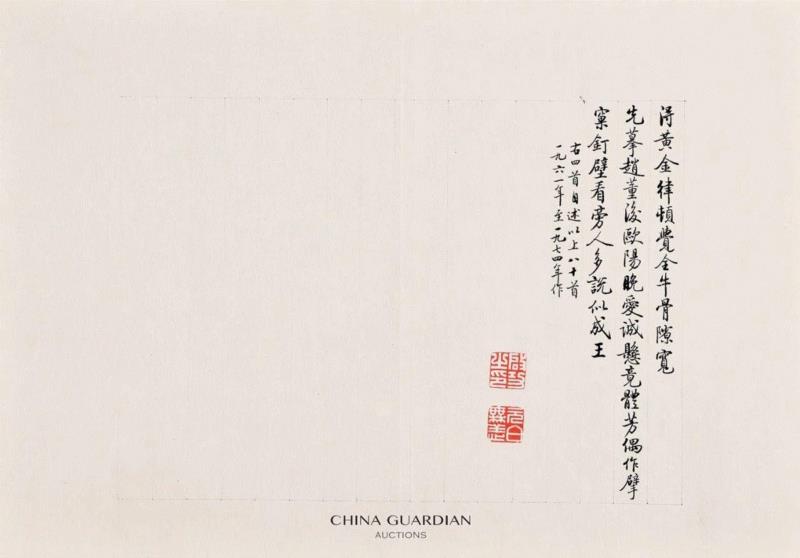 得黃金律頓覺全牛骨隙寬
先摹趙董後歐陽晚愛誠懸竟體芳偶作擘
窠釘壁看旁人多說似成王
右四首自述以上八十首
一九六一年至一九七四年作
啟功之印
CHINA GUARDIAN
AUCTIONS